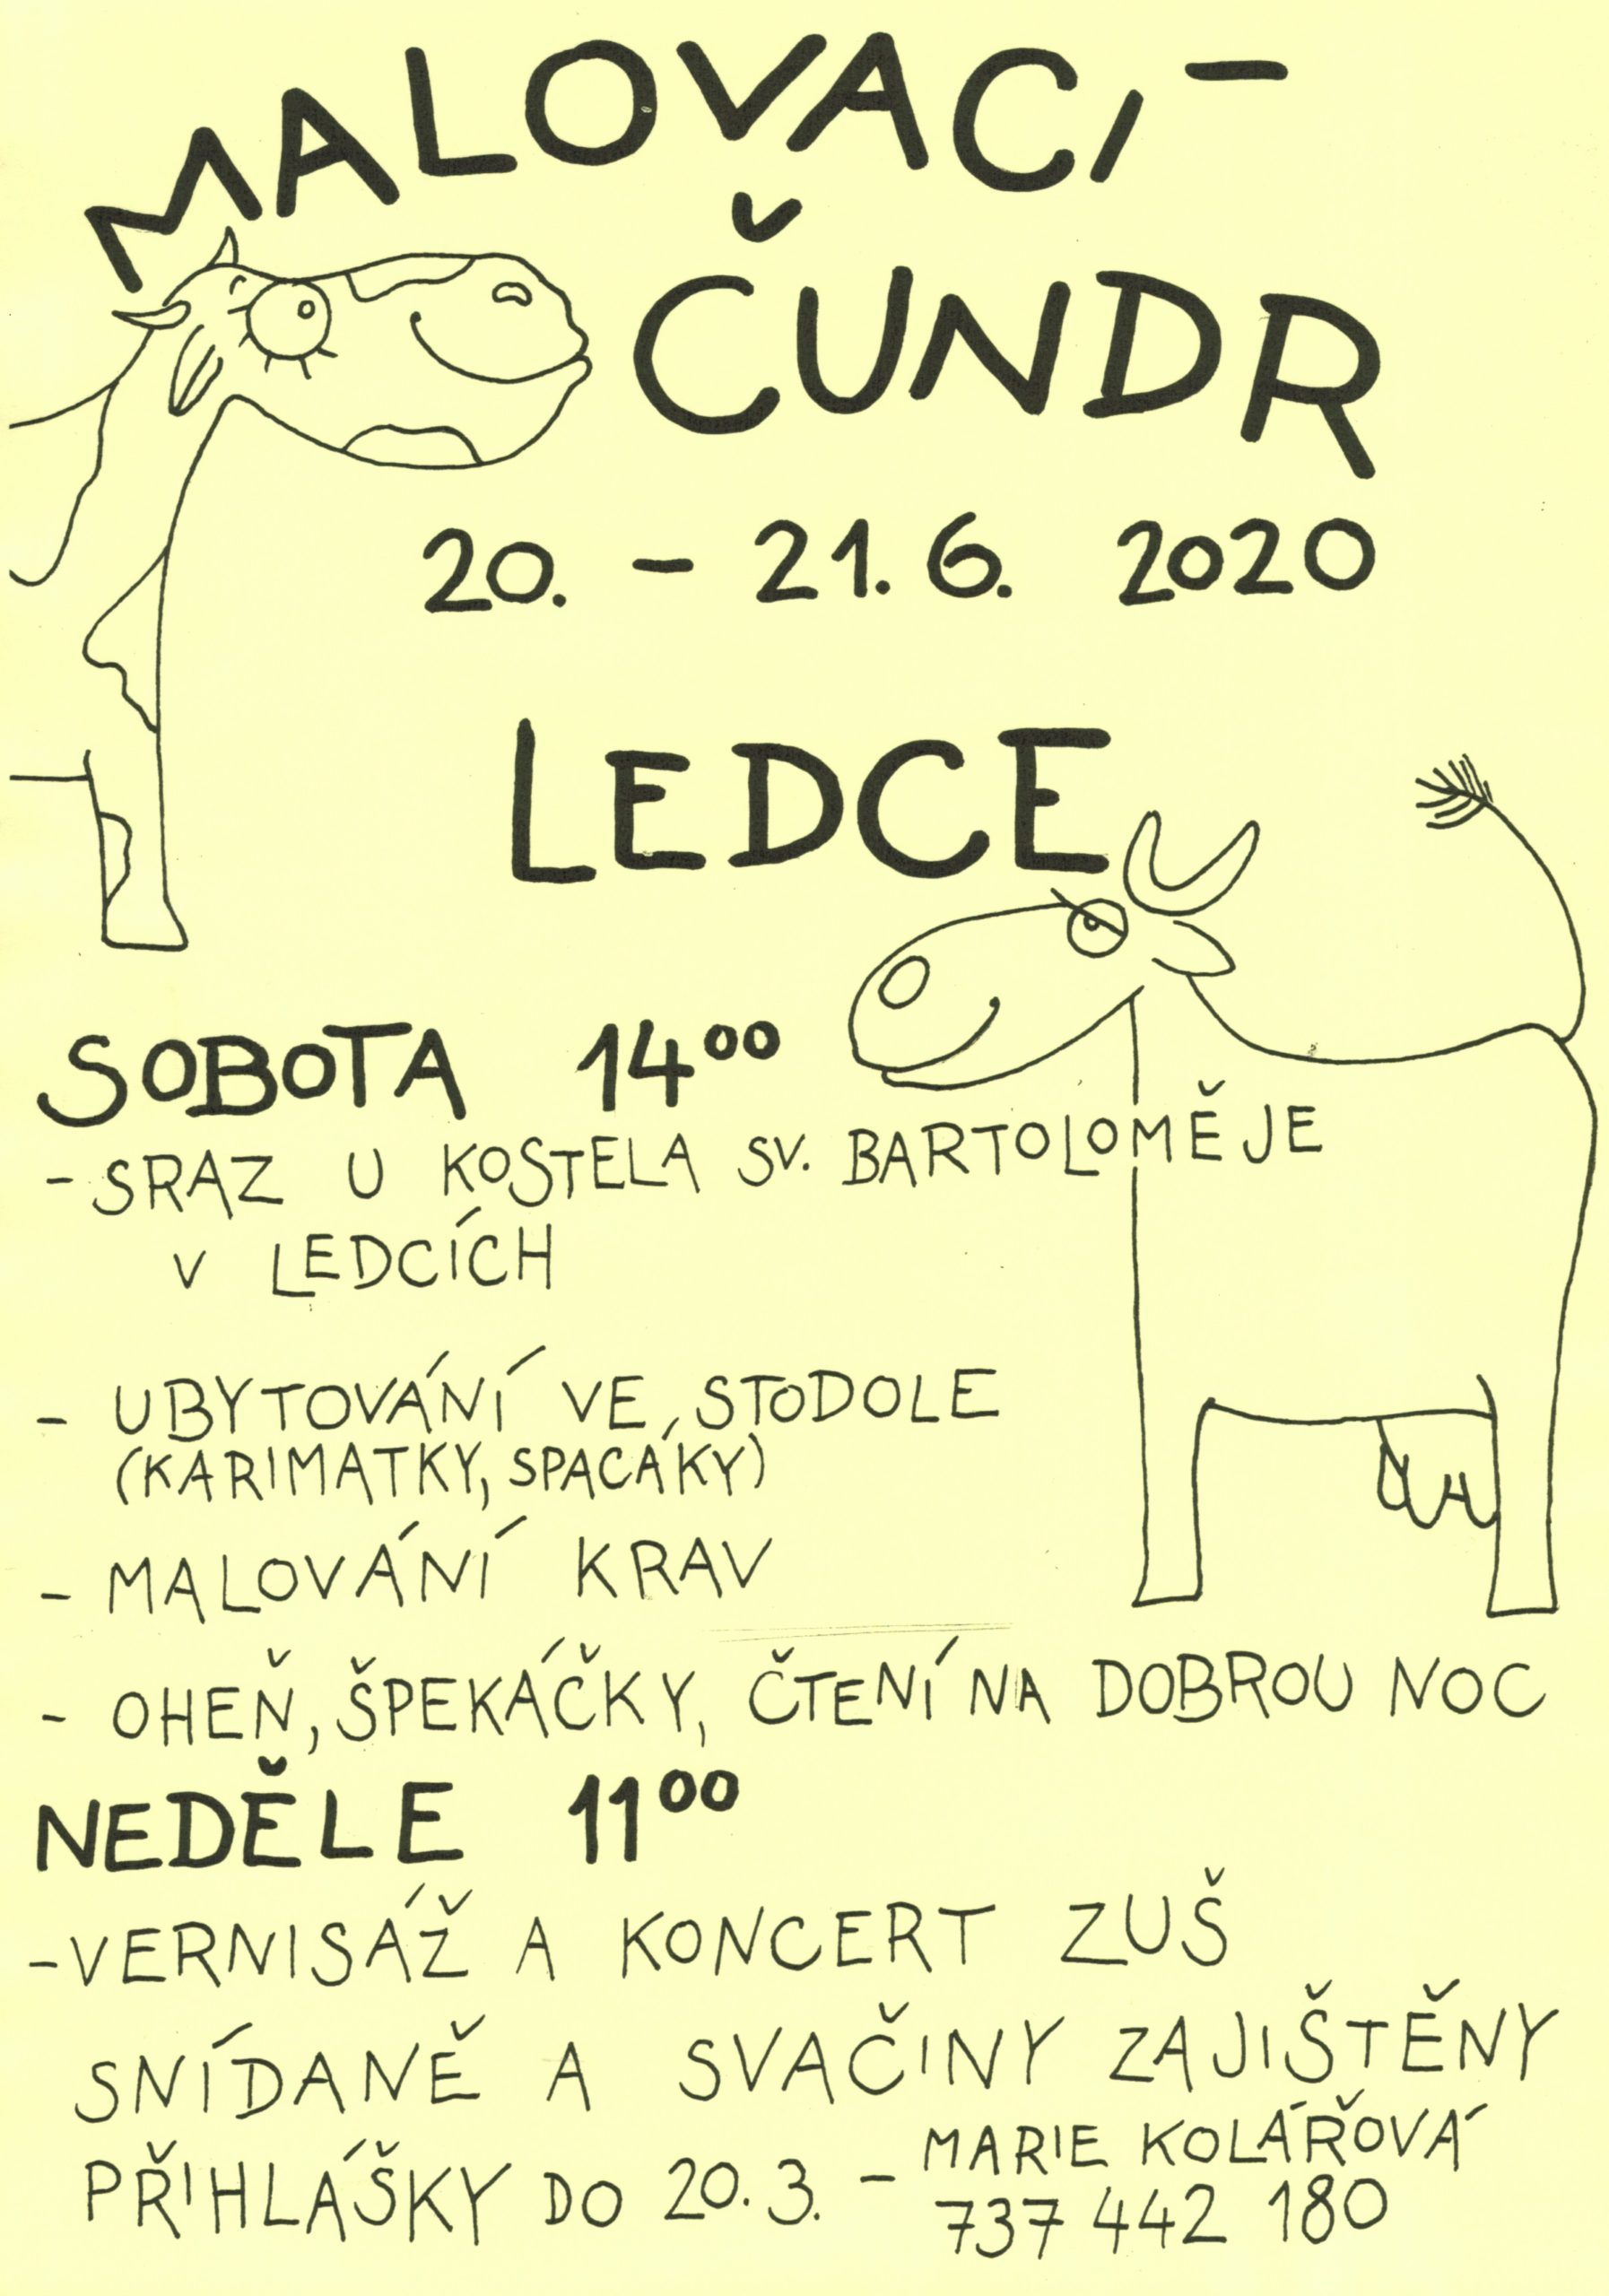 MALOVACÍ -
ČUNDR
20. - 21. 6. 2020
LEDCE
SOBOTA 14⁰⁰
- SRAZ U KOSTELA SV. BARTOLOMĚJE
V LEDCÍCH
- UBYTOVÁNÍ VE STODOLE
(KARIMATKY, SPACÁKY)
- MALOVÁNÍ KRAV
- OHEŇ, ŠPEKÁČKY, ČTENÍ NA DOBROU NOC
NEDĚLE 11⁰⁰
- VERNISÁŽ A KONCERT ZUŠ
SNÍDANĚ A SVAČINY ZAJIŠTĚNY
PŘIHLÁŠKY DO 20. 3. - MARIE KOLÁŘOVÁ
737 442 180